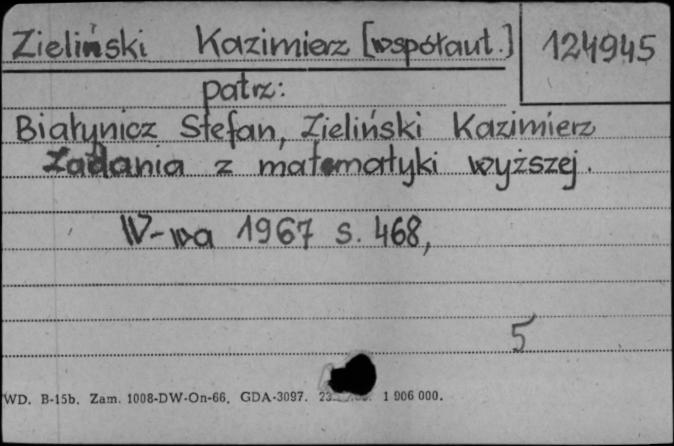 Zieliński Kazimierz [współaut.] 124945
patrz:
Białynicz Stefan, Zieliński Kazimierz
Zadania z matematyki wyższej.
W-wa 1967 s. 468,
5
WD. B-15b. Zam. 1008-DW-On-66. GDA-3097. 1 906 000.